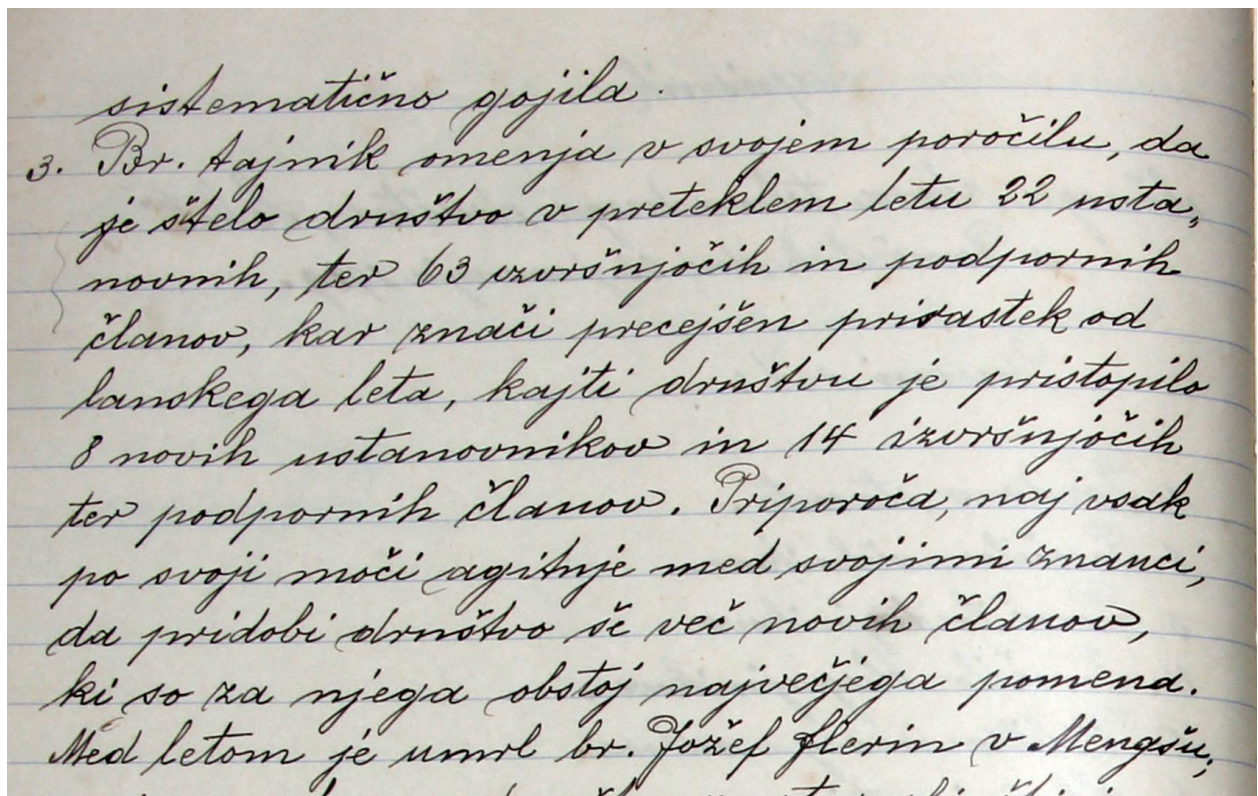 sistematično gojila.
3. Br. tajnik omenja v svojem poročilu, da
je štelo društvo v preteklem letu 22 usta„
novnih, ter 63 izvršnjočih in podpornih
članov, kar znači precejšen prirastek od
lanskega leta, kajti društvu je pristopilo
8 novih ustanovnikov in 14 izvršnjočih
ter podpornih članov. Priporoča, naj vsak
po svoji moči agituje med svojimi znanci,
da pridobi društvo še več novih članov,
ki so za njega obstoj največjega pomena.
Med letom je umrl br. Jožef Flerin v Mengšu;